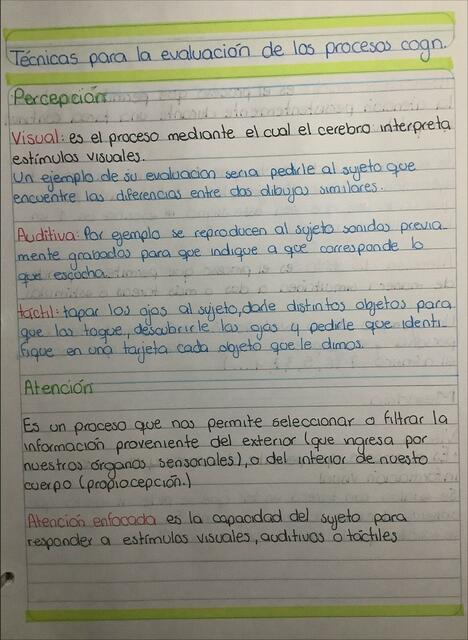 Técnicas para la evaluación de los procesos cogn.
Percepción
Visual: es el proceso mediante el cual el cerebro interpreta
estímulos visuales.
Un ejemplo de su evaluacion seria pedirle al sujeto que
encuentre las diferencias entre dos dibujos similares.
Auditiva: Por ejemplo se reproducen al sujeto sonidos previa-
mente grabados para que indique a que corresponde lo
que escucha.
táctil: tapar los ojos al sujeto, darle distintos objetos para
que los toque, descubrirle los ojos y pedirle que identi-
fique en una tarjeta cada objeto que le dimos.
Atención
Es un proceso que nos permite seleccionar o filtrar la
información proveniente del exterior (que ingresa por
nuestros órganos sensoriales), o del interior de nuesto
cuerpo (propiocepción.)
Atención enfocada es la capacidad del sujeto para
responder a estímulos visuales, auditivos o táctiles